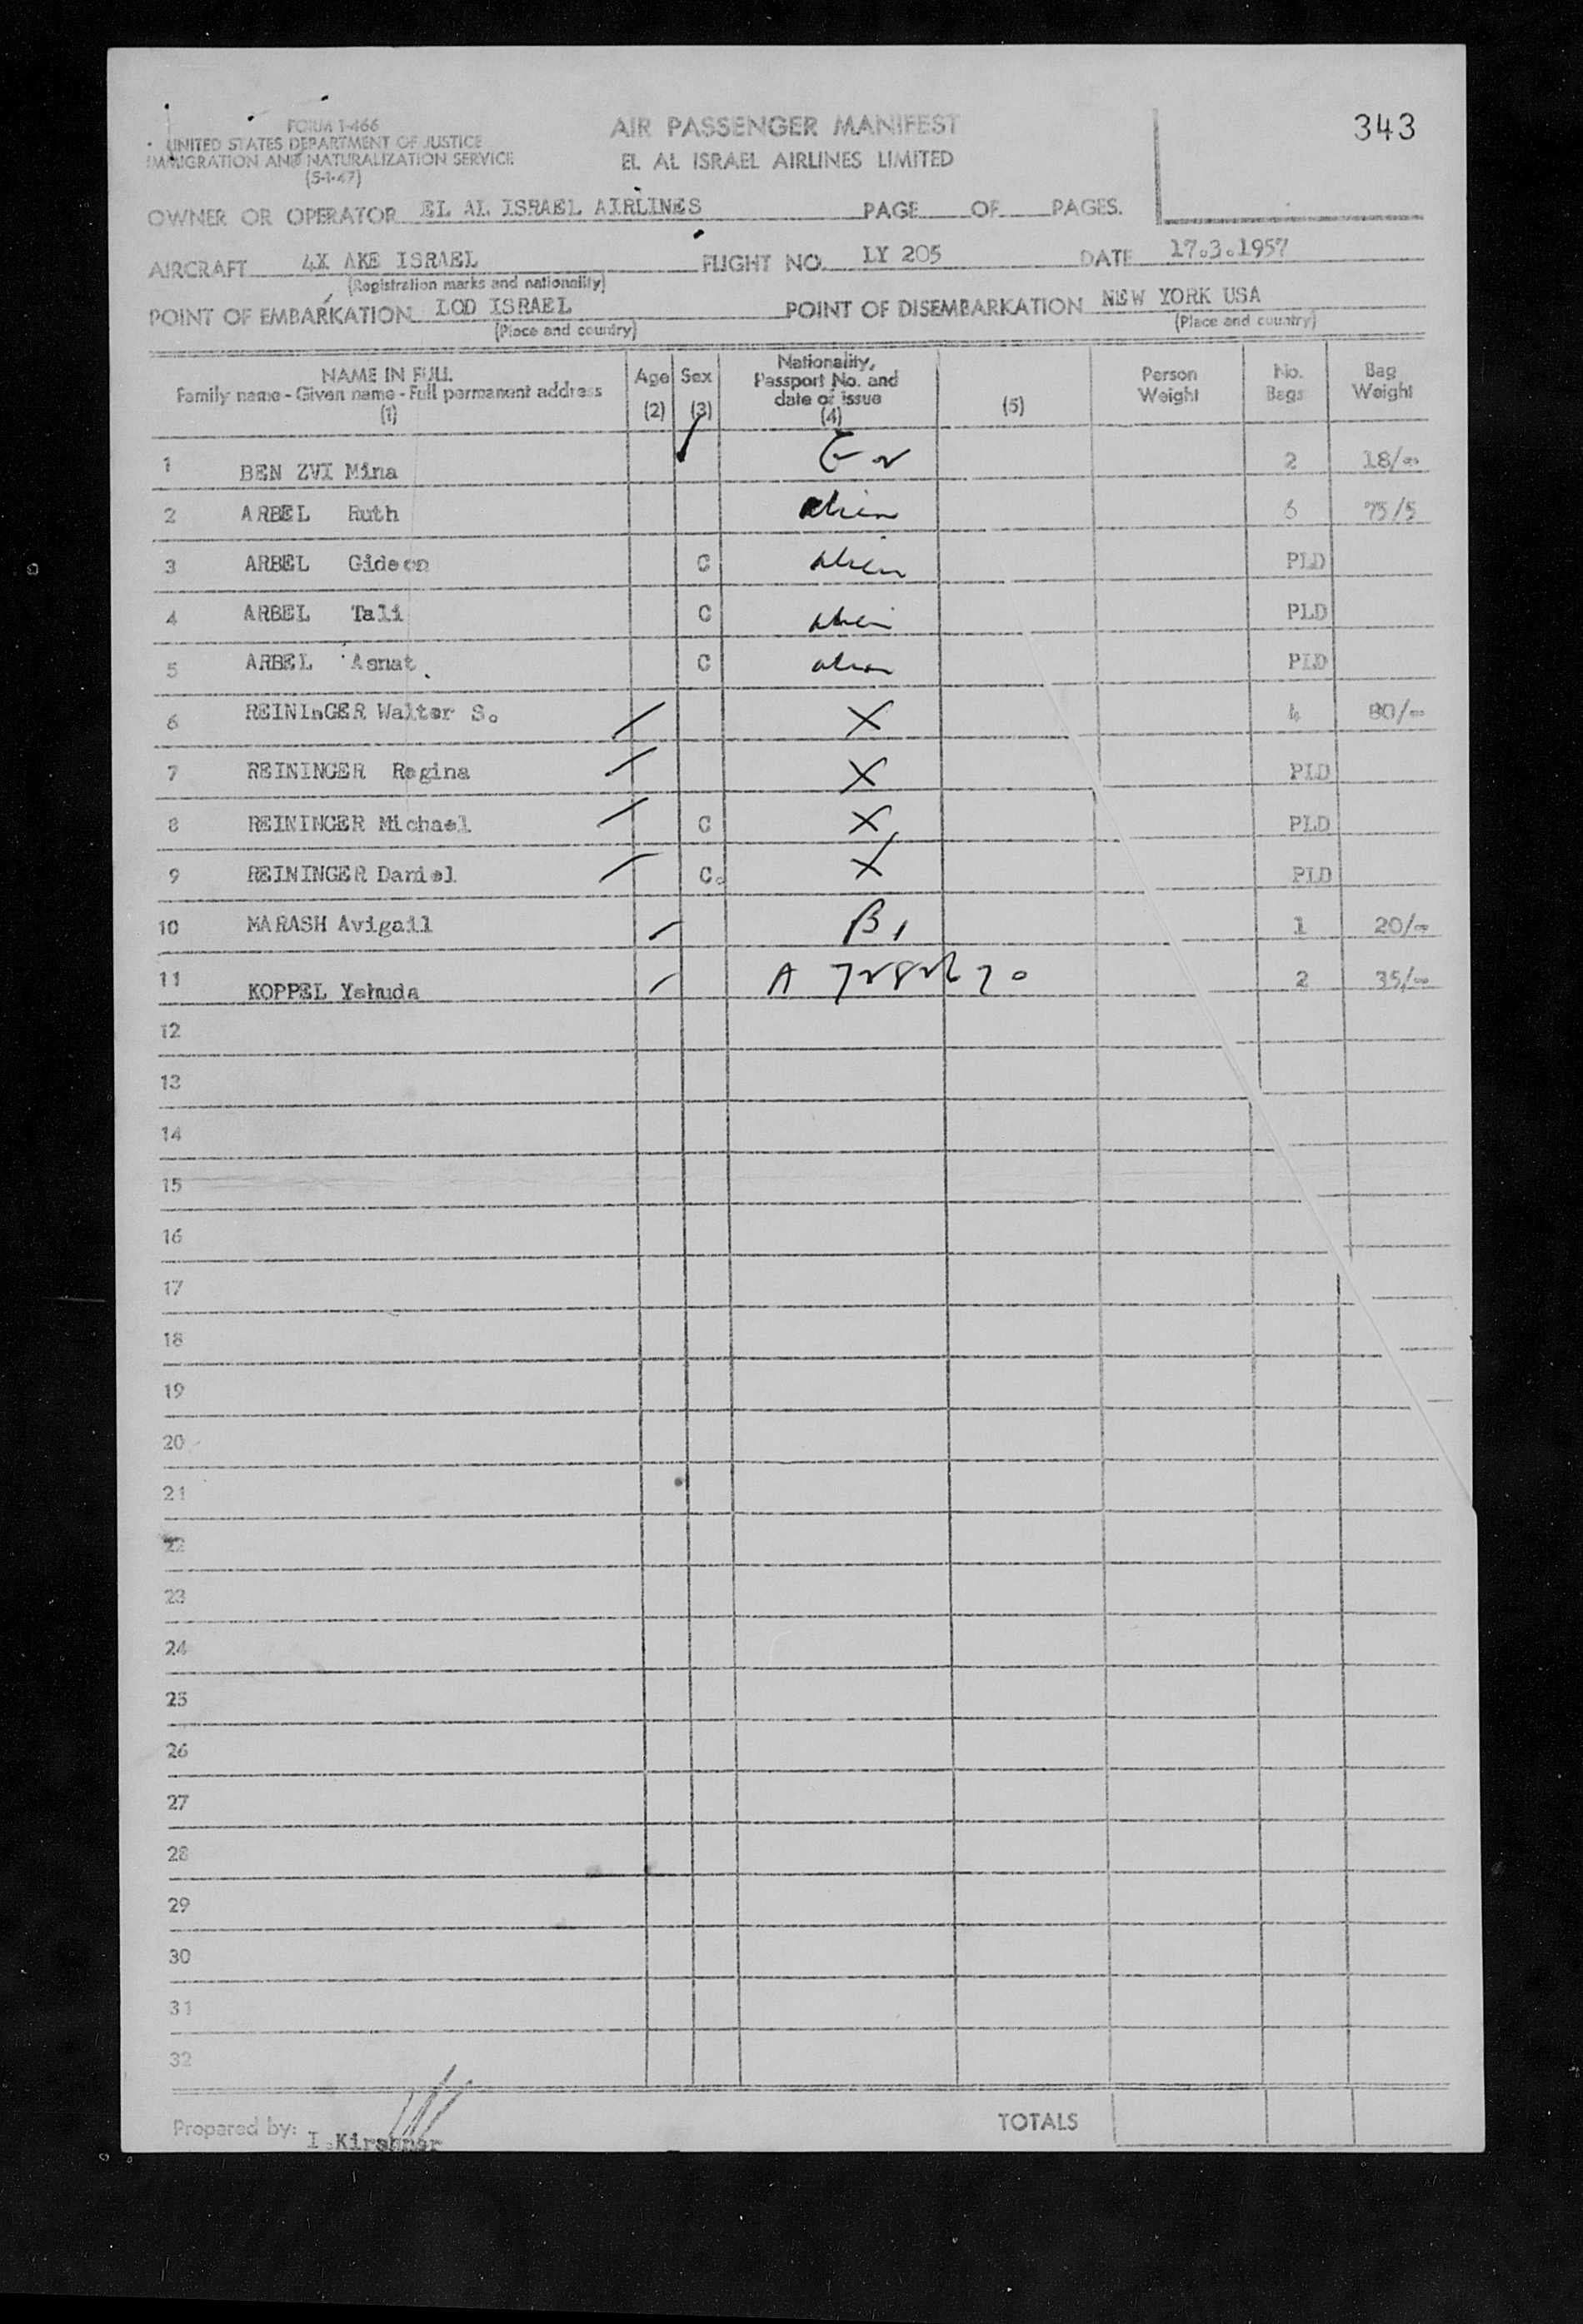 343
FORM 1-466
UNITED STATES DEPARTMENT OF JUSTICE
IMMIGRATION AND NATURALIZATION SERVICE
(5-1-47)
AIR PASSENGER MANIFEST
EL AL ISRAEL AIRLINES LIMITED
OWNER OR OPERATOR EL AL ISRAEL AIRLINES PAGE OF PAGES.
AIRCRAFT 4X AKE ISRAEL FLIGHT NO. LY 205 DATE 17.3.1957
(Registration marks and nationality)
POINT OF EMBARKATION LOD ISRAEL POINT OF DISEMBARKATION NEW YORK USA
(Place and country) (Place and country)
NAME IN FULL Family name - Given name - Full permanent address (1) Age (2) Sex (3) Nationality, Passport No. and date of issue (4) (5) Person Weight No. Bags Bag Weight
1 BEN ZVI Mina 2 18/-
2 ARBEL Ruth alien 6 75/5
3 ARBEL Gideon C alien PLD
4 ARBEL Tali C alien PLD
5 ARBEL Asnat C alien PLD
6 REININGER Walter S. X 4 80/-
7 REININGER Regina X PLD
8 REININGER Michael C X PLD
9 REININGER Daniel C. X PLD
10 MARASH Avigail B1 1 20/-
11 KOPPEL Yehuda A 2 35/-
12
13
14
15
16
17
18
19
20
21
22
23
24
25
26
27
28
29
30
31
32
Prepared by: I. Kirshner TOTALS